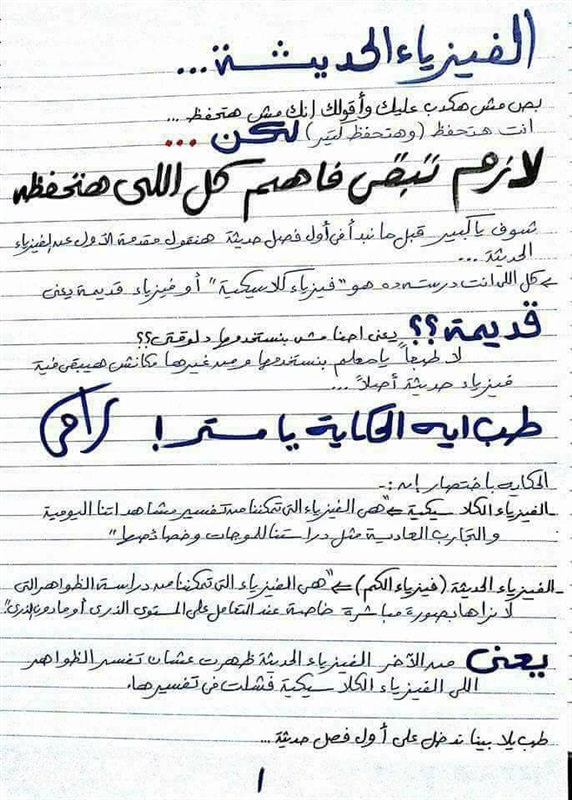 الفيزياء الحديثة...
بص مش هكدب عليك وأقولك انك مش هتحفظ ...
انت هتحفظ (وهتحفظ كتير) لكن ...
لازم تبقى فاهم كل اللى هتحفظه
شوف يا كبير قبل ما نبدأ فى أول فصل حديثة هنقول مقدمة الأول عن الفيزياء
الحديثة ...
كل اللى انت درسته ده هو "فيزياء كلاسيكية" أو فيزياء قديمة يعنى
قديمة؟؟ يعنى احنا مش بنستخدمها دلوقتى؟؟
لا طبعاً يا معلم بنستخدمها ومن غيرها مكانش هيبقى فيه
فيزياء حديثة أصلاً...
طب ايه الحكاية يا مستر!
الحكاية باختصار إنه :-
- الفيزياء الكلاسيكية ⇐ "هى الفيزياء التى تمكننا من تفسير مشاهداتنا اليومية
والتجارب العادية مثل دراستنا للموجات وخصائصها"
- الفيزياء الحديثة (فيزياء الكم) ⇐ "هى الفيزياء التى تمكننا من دراسة الظواهر التى
لا نراها بصورة مباشرة خاصة عند التعامل على المستوى الذرى أو مادون الذرى"
يعنى من الآخر الفيزياء الحديثة ظهرت عشان تفسر الظواهر
اللى الفيزياء الكلاسيكية فشلت فى تفسيرها.
طب يلا بينا ندخل على أول فصل حديثة...
١